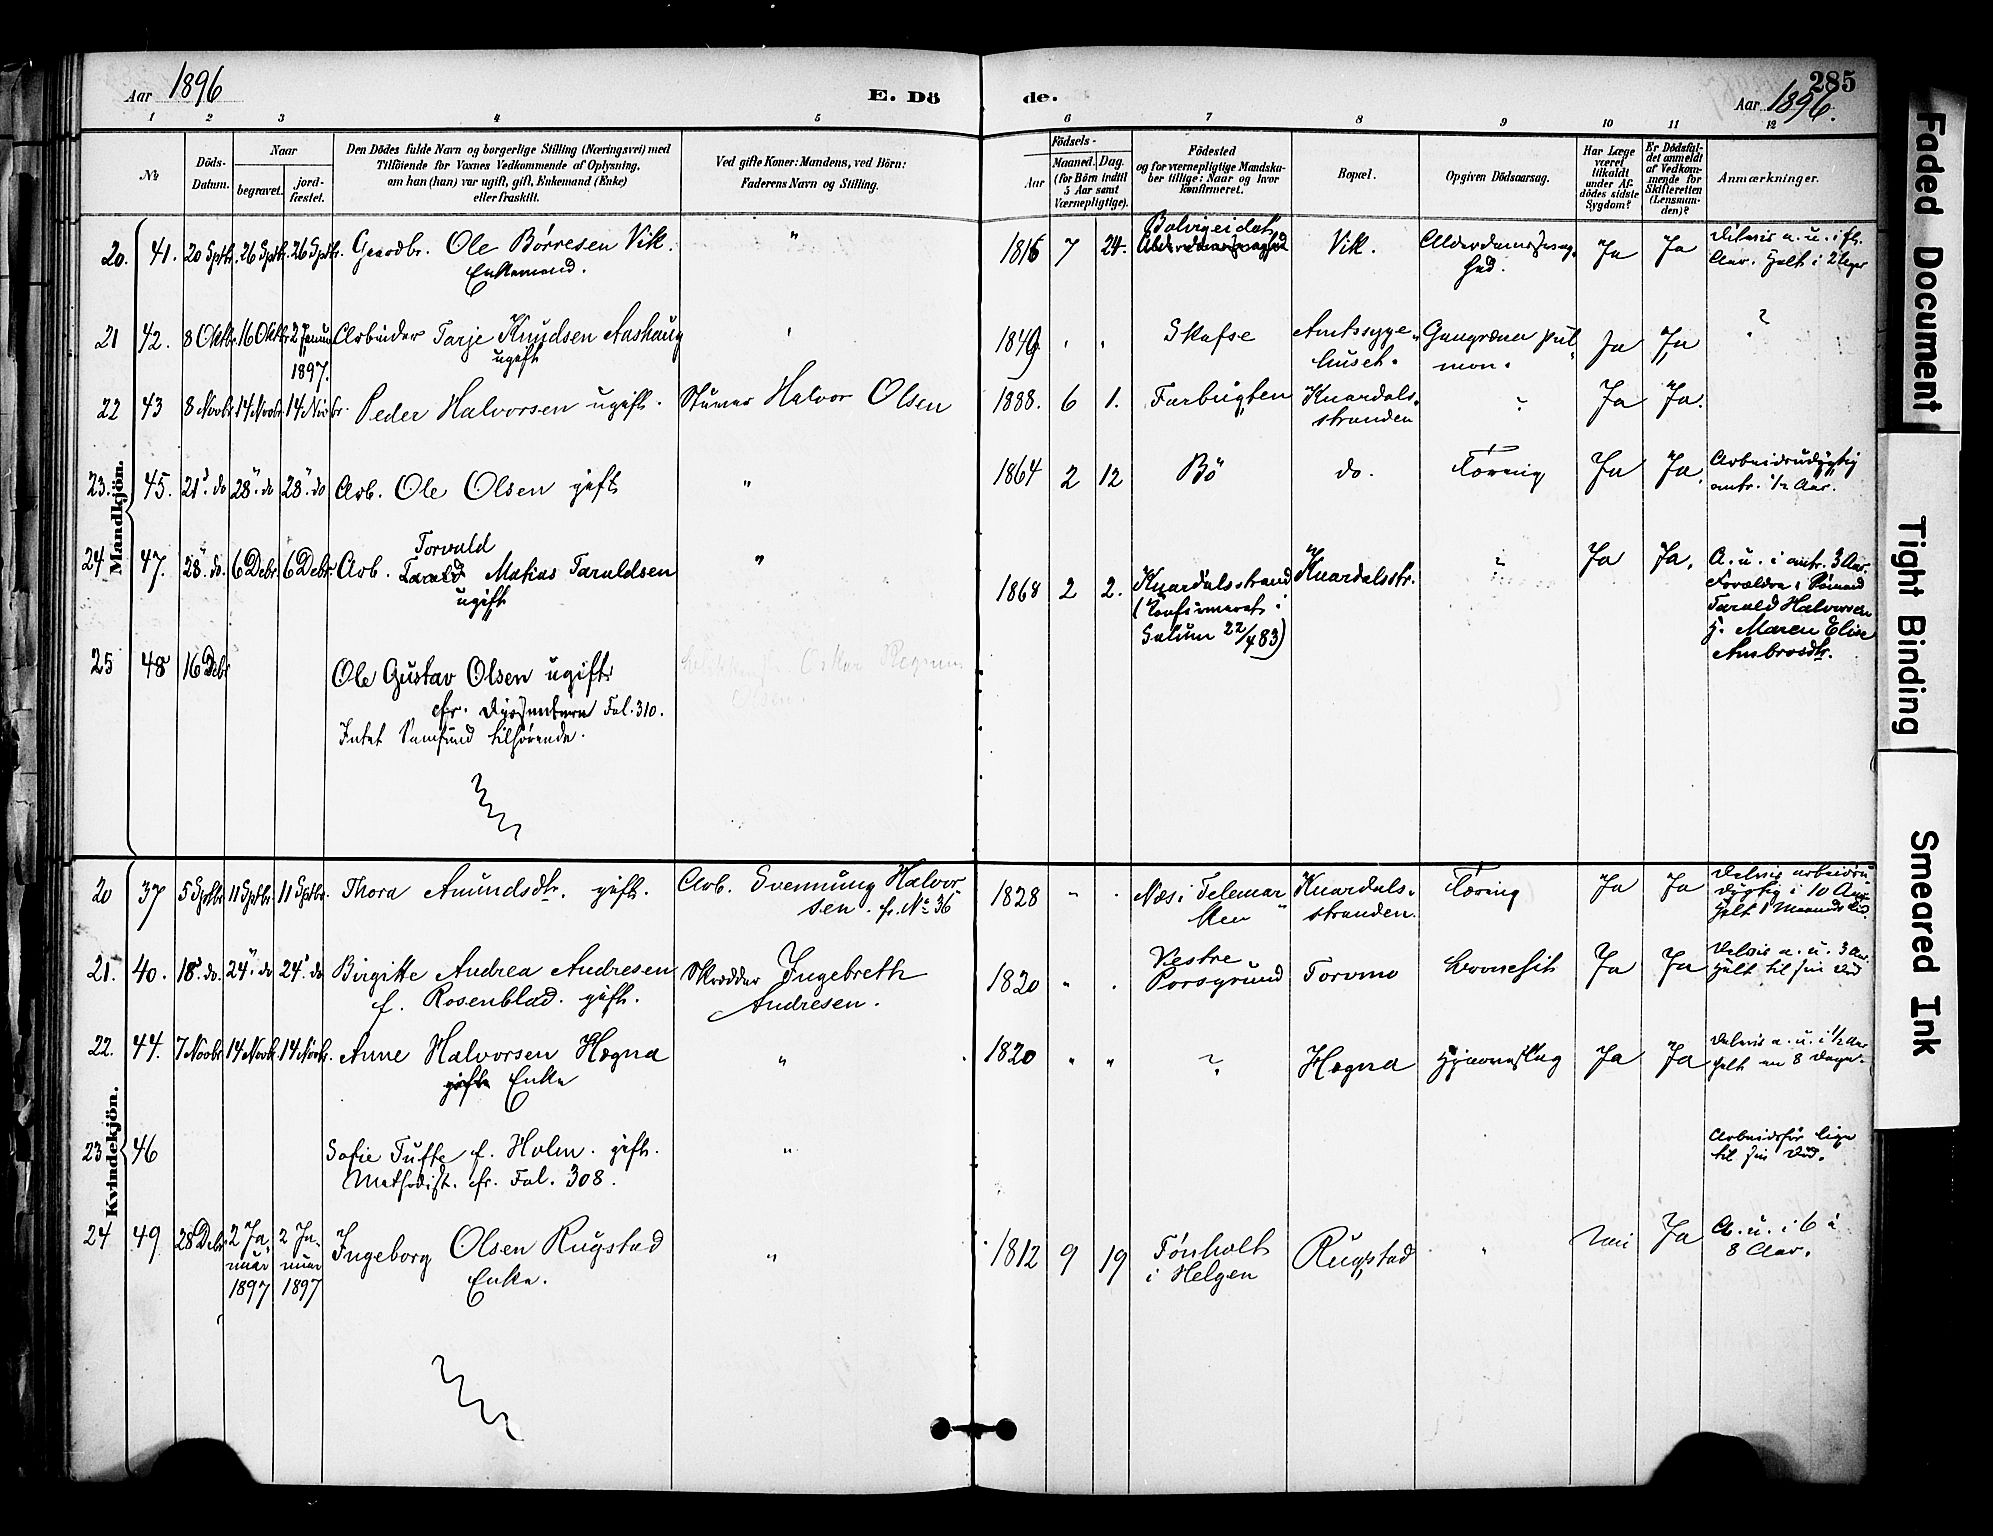 Aar 1896
E. Dö
de.
285
Aar 1896.
1 2 3 4 5 6 7 8 9 10 11 12
No
Döds-
Datum.
Naar
begravet.
jord-
fæstet.
Den Dödes fulde Navn og borgerlige Stilling (Næringsvei) med
Tilföiende for Voxnes Vedkommende af Oplysning,
om han (hun) var ugift, gift, Enkemand (Enke)
eller fraskilt.
Ved gifte Koner: Mandens, ved Börn:
Faderens Navn og Stilling.
Födsels-
Aar
Maaned. Dag.
(for Börn indtil
5 Aar samt
Værnepligtige).
Födested
og for værnepligtige Mandska-
ber tillige: Naar og hvor
konfirmeret.
Bopæl.
Opgiven Dödsaarsag.
Har Læge
været
tilkaldt
under Af-
dödes sidste
Sygdom?
Er Dödsfal-
det anmeldt
af Vedkom-
mende for
Skifteretten
(Lensman-
den)?
Anmærkninger.
Mandkjön.
20. 41. 20 Sptbr. 26 Sptbr. 26 Sptbr. Gaardbr. Ole Børresen Vik.
Enkemand.
"
1816 7 24. Vik. Alderdomssvag-
hed.
Ja Ja
21 42. 8 Oktbr. 16 Oktbr. 2 Januar
1897.
Arbeider Tarje Knudsen Aashaug
ugift
1849. Skafse Amtssyge-
huset.
Gangræna pul-
mon.
Ja Ja ?
22 43 8 Novbr. 14 Novbr. 14 Novbr. Peder Halvorsen ugift. Stuver Halvor Olsen
1888. 6 1. Farbugten Knardals-
stranden
? Ja Ja.
23. 45. 21 do 28 do 28 do Arb. Ole Olsen gift "
1864 2 12 Bö do. Tæring Ja Ja. Arbeidsudygtig
omtr. 1/2 Aar.
24 47. 28 do. 6 Debr. 6 Debr. Arb. Torvald
Tarald Matias Taraldsen
ugift
"
1868 2 2. Knardalsstrand
(Konfirmeret i
Solum 22/4 83)
Knardalsstr. ? Ja Ja. A. u. i omtr. 3 Aar.
Forældre: Sømand
Tarald Halvorsen
H. Maren Elise
Ambrosdtr.
25 48 16 Debr Ole Gustav Olsen ugift
cfr. Dyssenterne Fol. 310.
Intet Samfund tilhørende.
Oskar Magnus
Olsen
Kvindekjön.
20 37 5 Sptbr 11 Sptbr. 11 Sptbr. Thora Amundsdtr. gift. Arb. Svennung Halvor-
sen. fr. No 36
1828 " Næs i Telemar-
ken
Knardals-
stranden.
Tæring Ja Ja Delvis arbeidsu-
dygtig i 10 Aar
Helt 1 Maaneds Tid.
21. 40. 18 do. 24 do 24 do Birgitte Andrea Andresen
f. Rosenblad. gift.
Skrædder Ingebreth
Andresen.
1820 " Vestre
Porsgrund
Torvmo Ja Ja Delvis a. u. 3 Aar.
Helt til sin Død
22. 44. 7 Novbr 14 Novbr. 14 Novbr. Anne Halvorsen Hogna
gift Enke
"
1820 " " ? Hogna Hjerneslag Ja Ja Delvis a. u. i 1/2 Aar
helt en 8 Dage.
23 46 Sofie Tufte f. Holm. gift.
Methodist. cfr. Fol. 308.
"
Arbeidsför lige
til sin Död.
24 49 28 Debr. 2 Ja-
nuar
1897
2 Ja-
nuar
1897
Ingeborg Olsen Rugstad
Enke.
"
1812 9 19 Tönholt
i Helgen
Rugstad " Nei Ja A. u. i 6 à
8 Aar.
Faded Document
Tight Binding
Smeared Ink